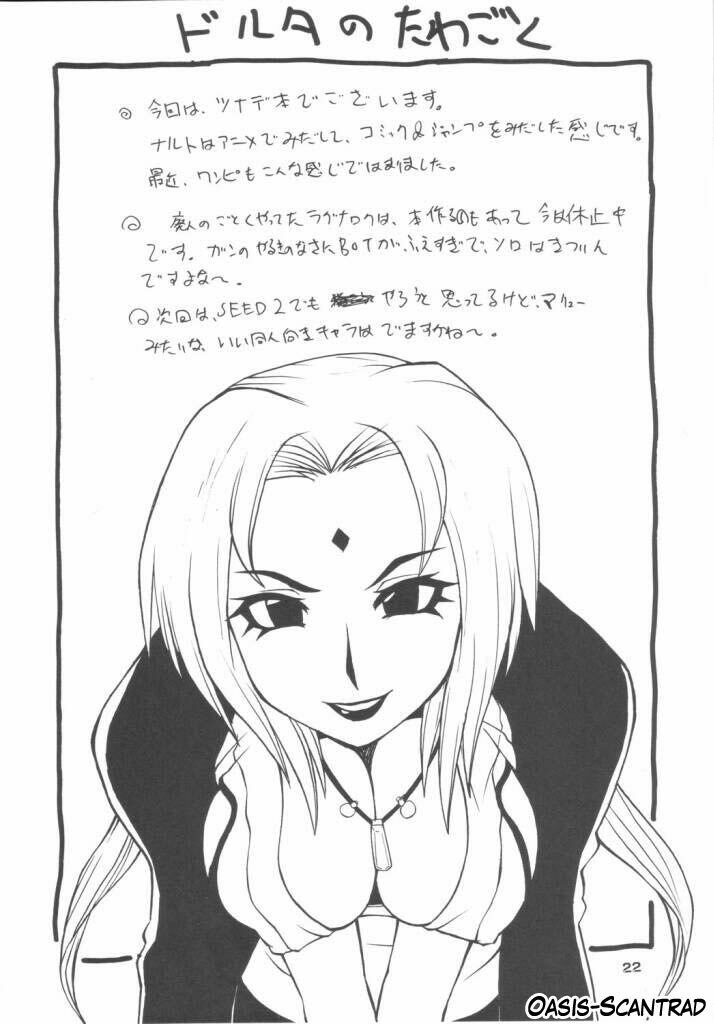 ドルタのたわごと
◎ 今回は、ツナデ本でございます。
ナルトはアニメでみだして、コミック&ジャンプをみだした感じです。
最近、ワンピもこんな感じではまりました。
◎ 廃人のごとくやってたラグナロクは、本作るのもあって今は休止中
です。ガンのやるきのなさにBOTがふえすぎで、ソロはきついん
ですよな〜。
◎次回は、SEED2でも やろうと思ってるけど、マリュー
みたいな、いい同人向きキャラは でますかね〜。
22
OASIS-SCANTRAD